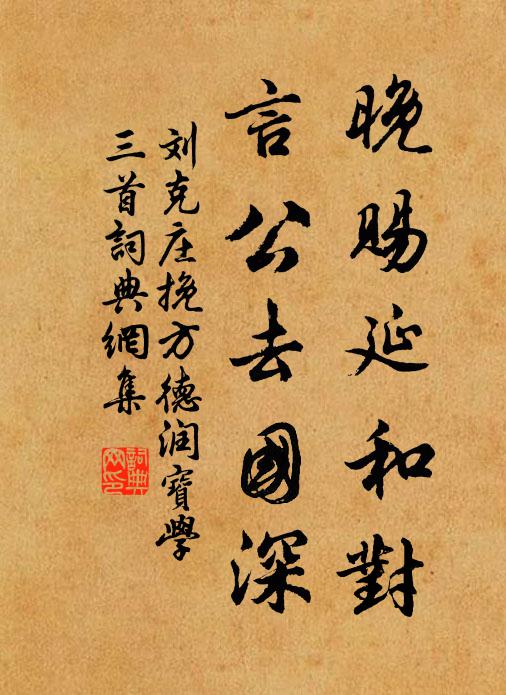 晚賜延和對
言公去國深
刘克庄挽方德润寶學
三首詞典網集
詞典
网印